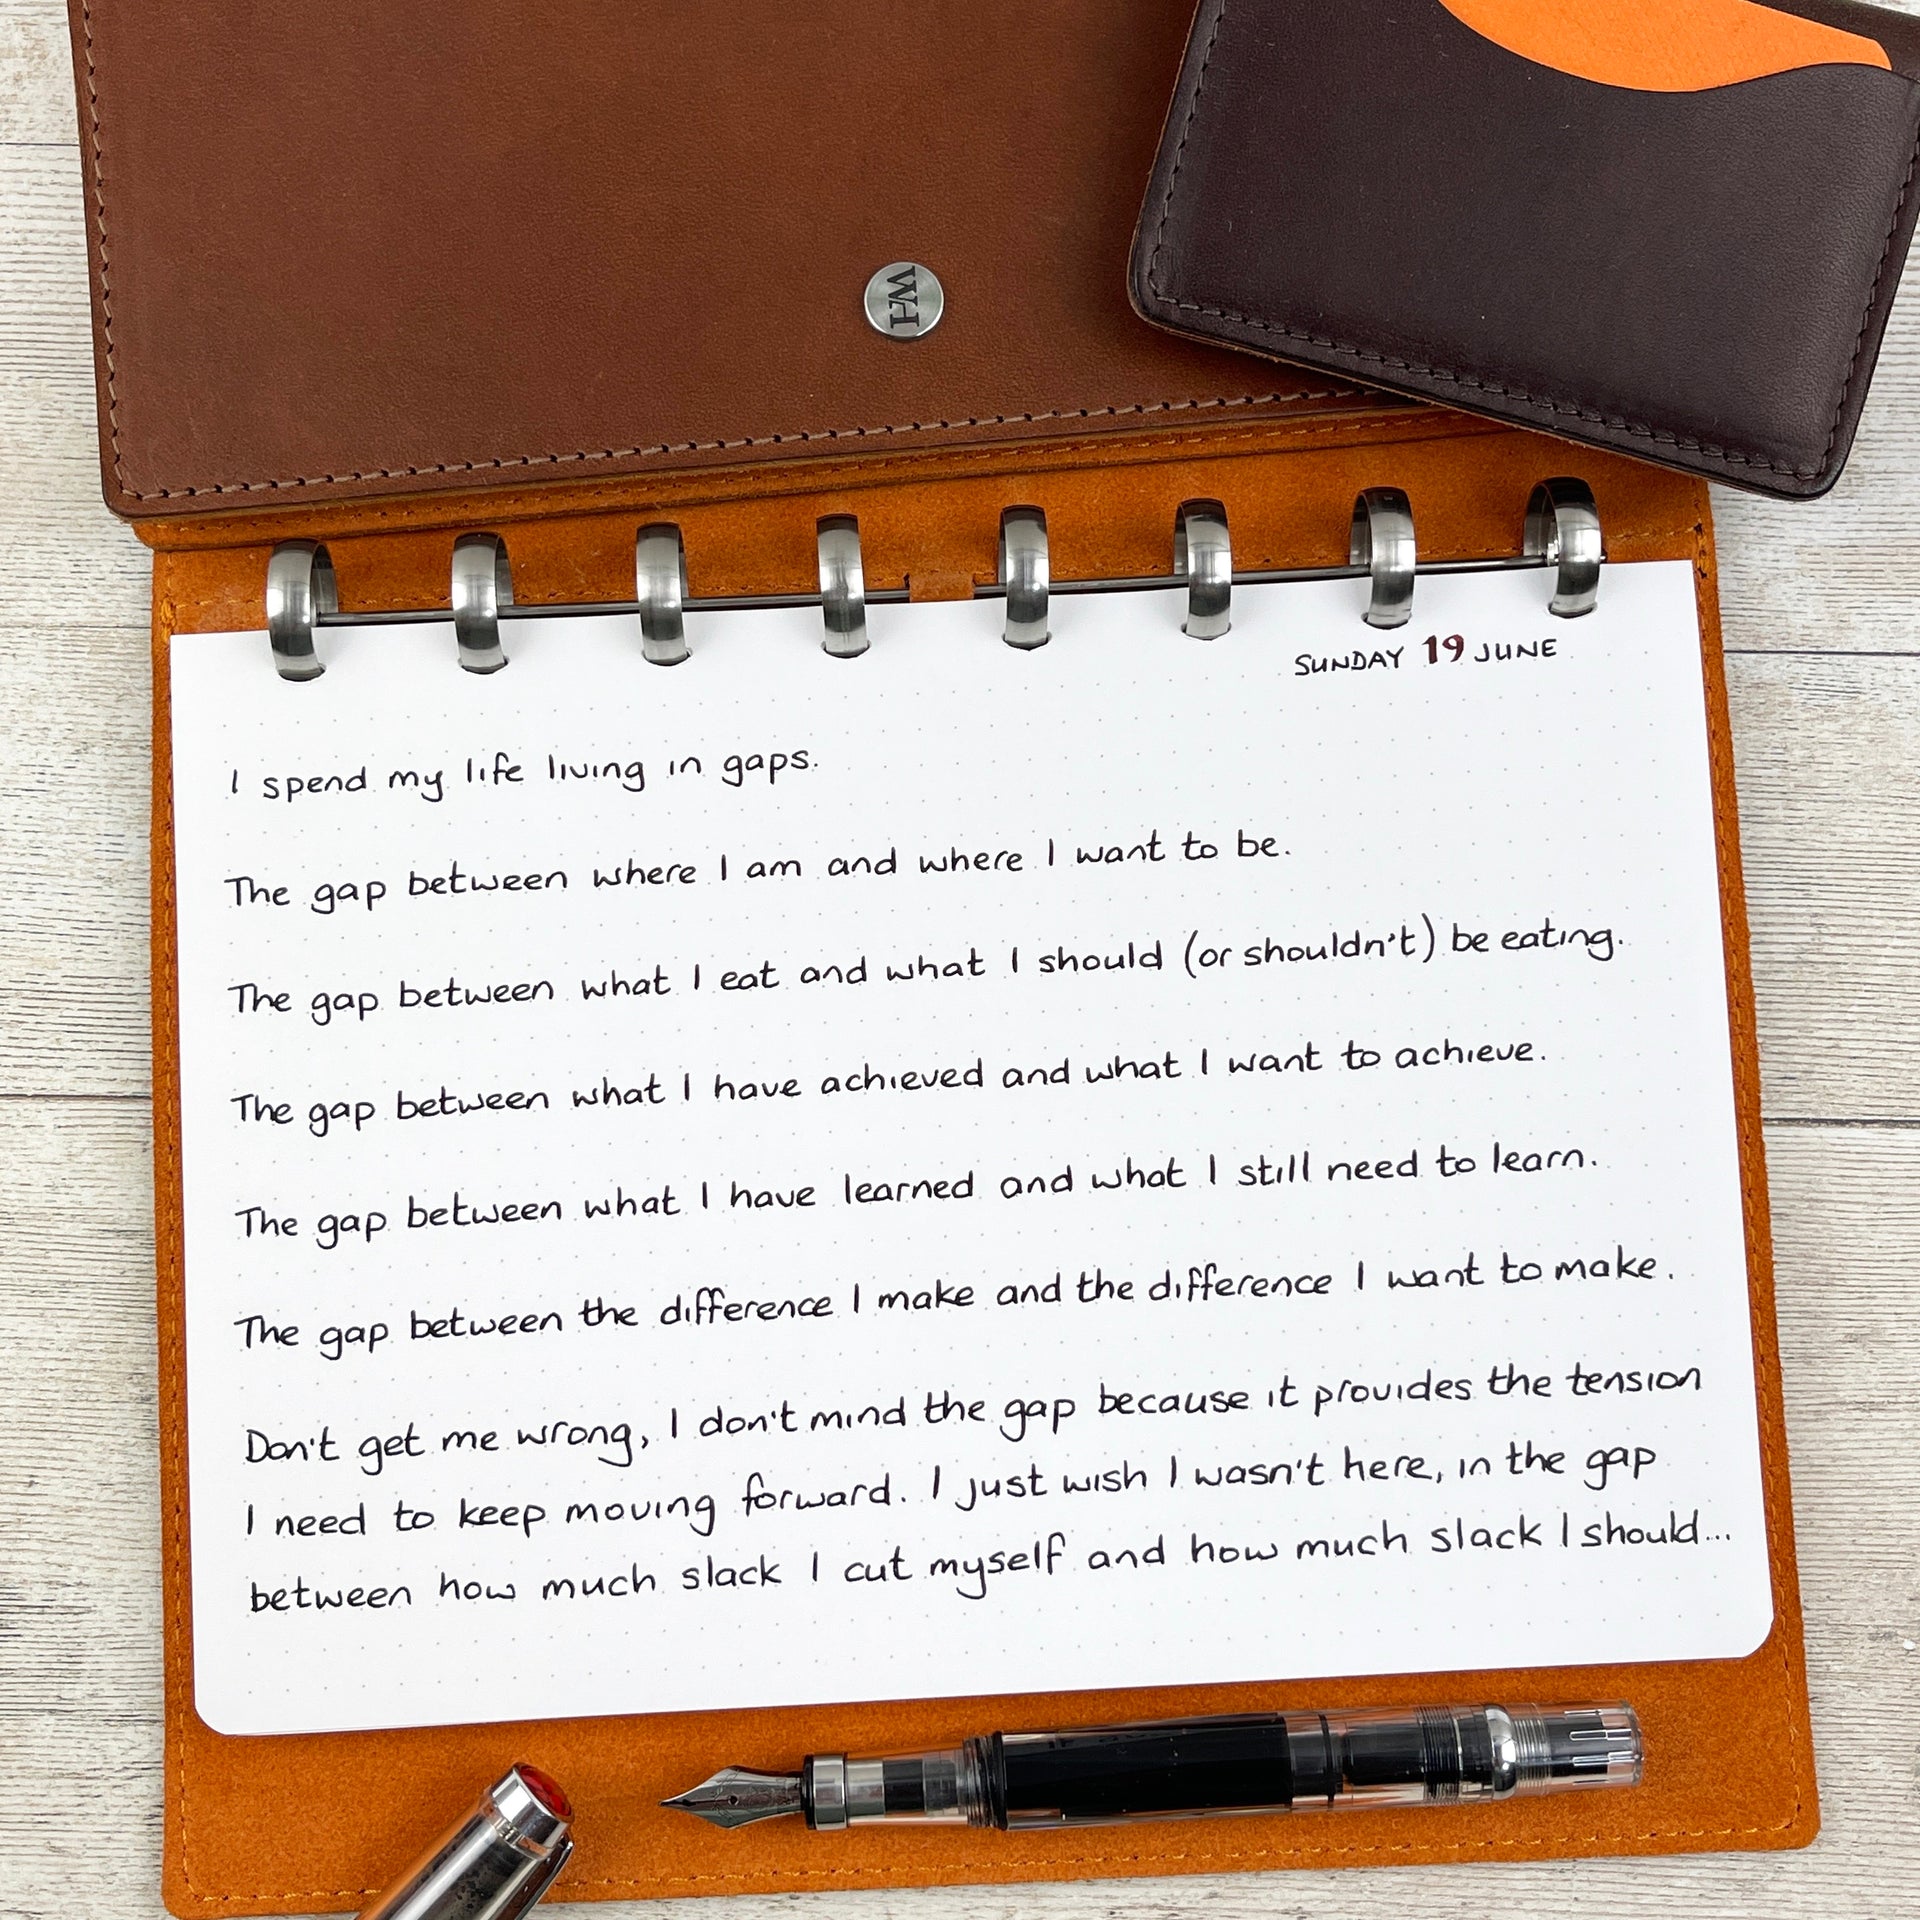 WH
SUNDAY 19 JUNE
I spend my life living in gaps.
The gap between where I am and where I want to be.
The gap between what I eat and what I should (or shouldn't) be eating.
The gap between what I have achieved and what I want to achieve.
The gap between what I have learned and what I still need to learn.
The gap between the difference I make and the difference I want to make.
Don't get me wrong, I don't mind the gap because it provides the tension
I need to keep moving forward. I just wish I wasn't here, in the gap
between how much slack I cut myself and how much slack I should...